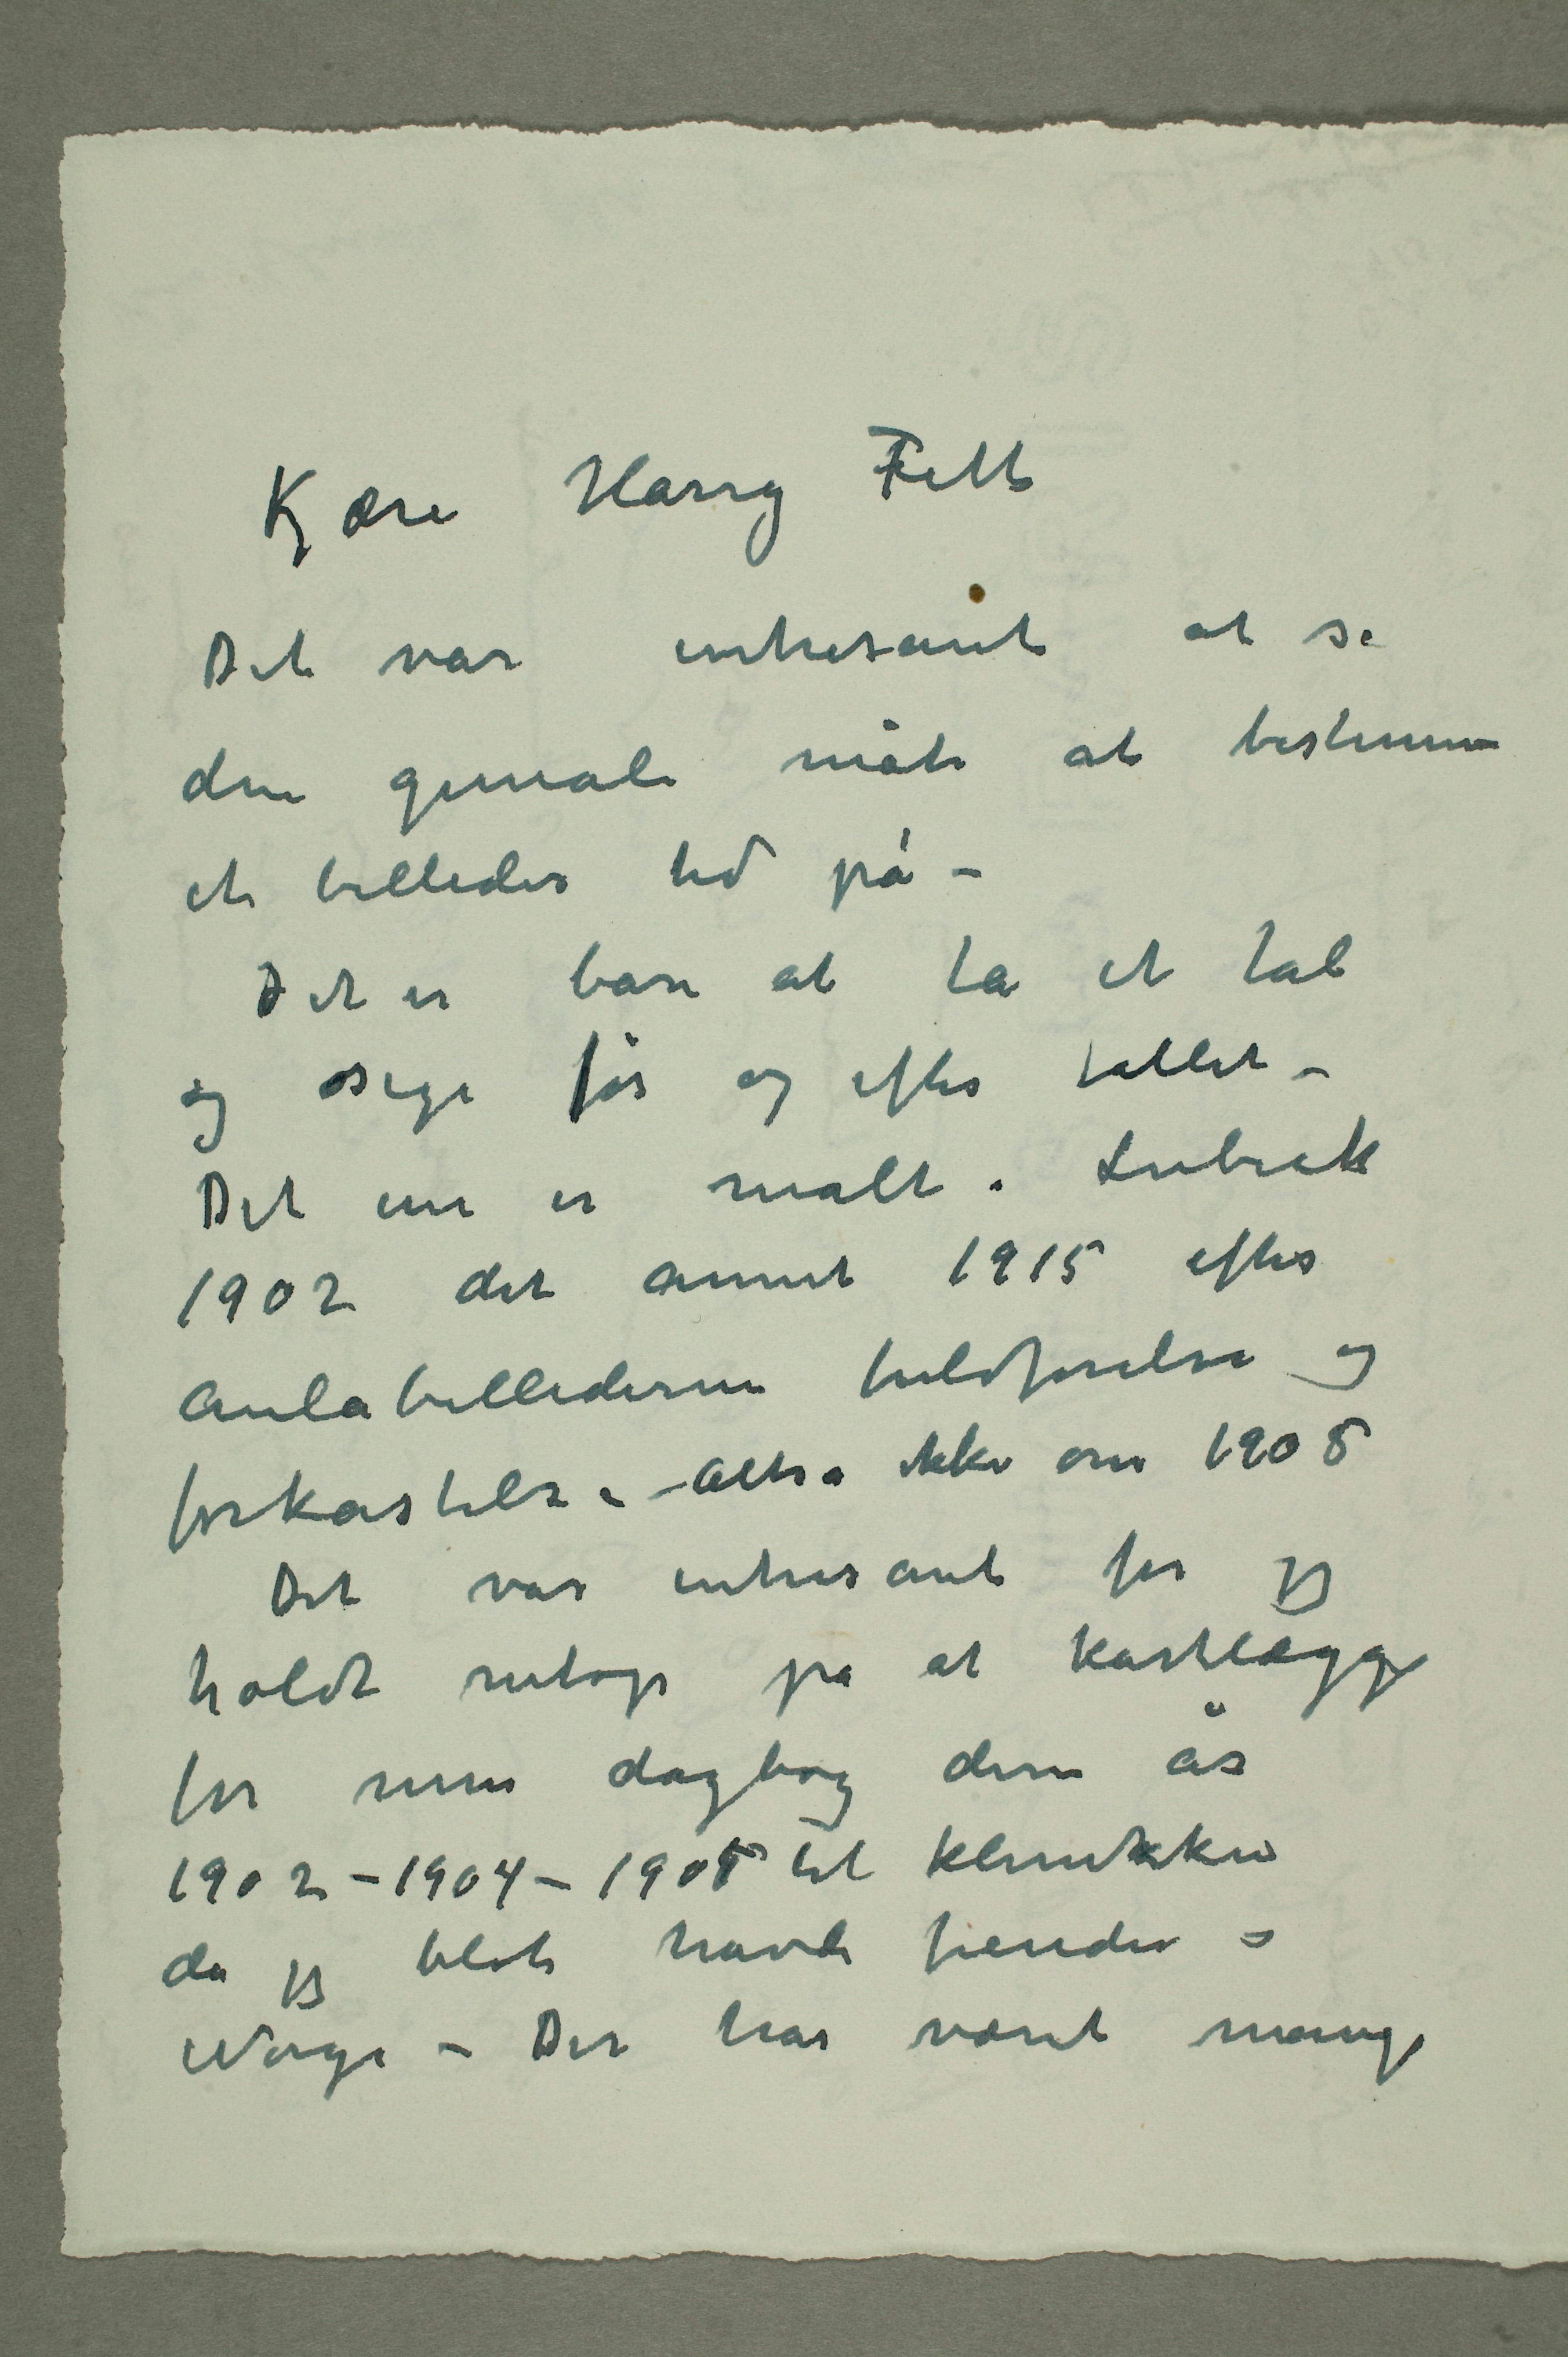 Kjære Harry Fett
Det var intresant at se
den geniale måte at bestemme
et billedes tid på –
Det er bare at ta et tal
og sige før og efter tallet –
Det ene er malt i Lubeck
1902 det annet 1915 efter
Aulabilledernes fuldførelse og
forkastelse – Altså ikke om 1908
Det var intresant for jeg
holdt netop på at kartlægge
for min dagbog disse år
1902 – 1904 – 1908 til klinikken
da jeg blot havde fiender i
Norge – Der har været mange